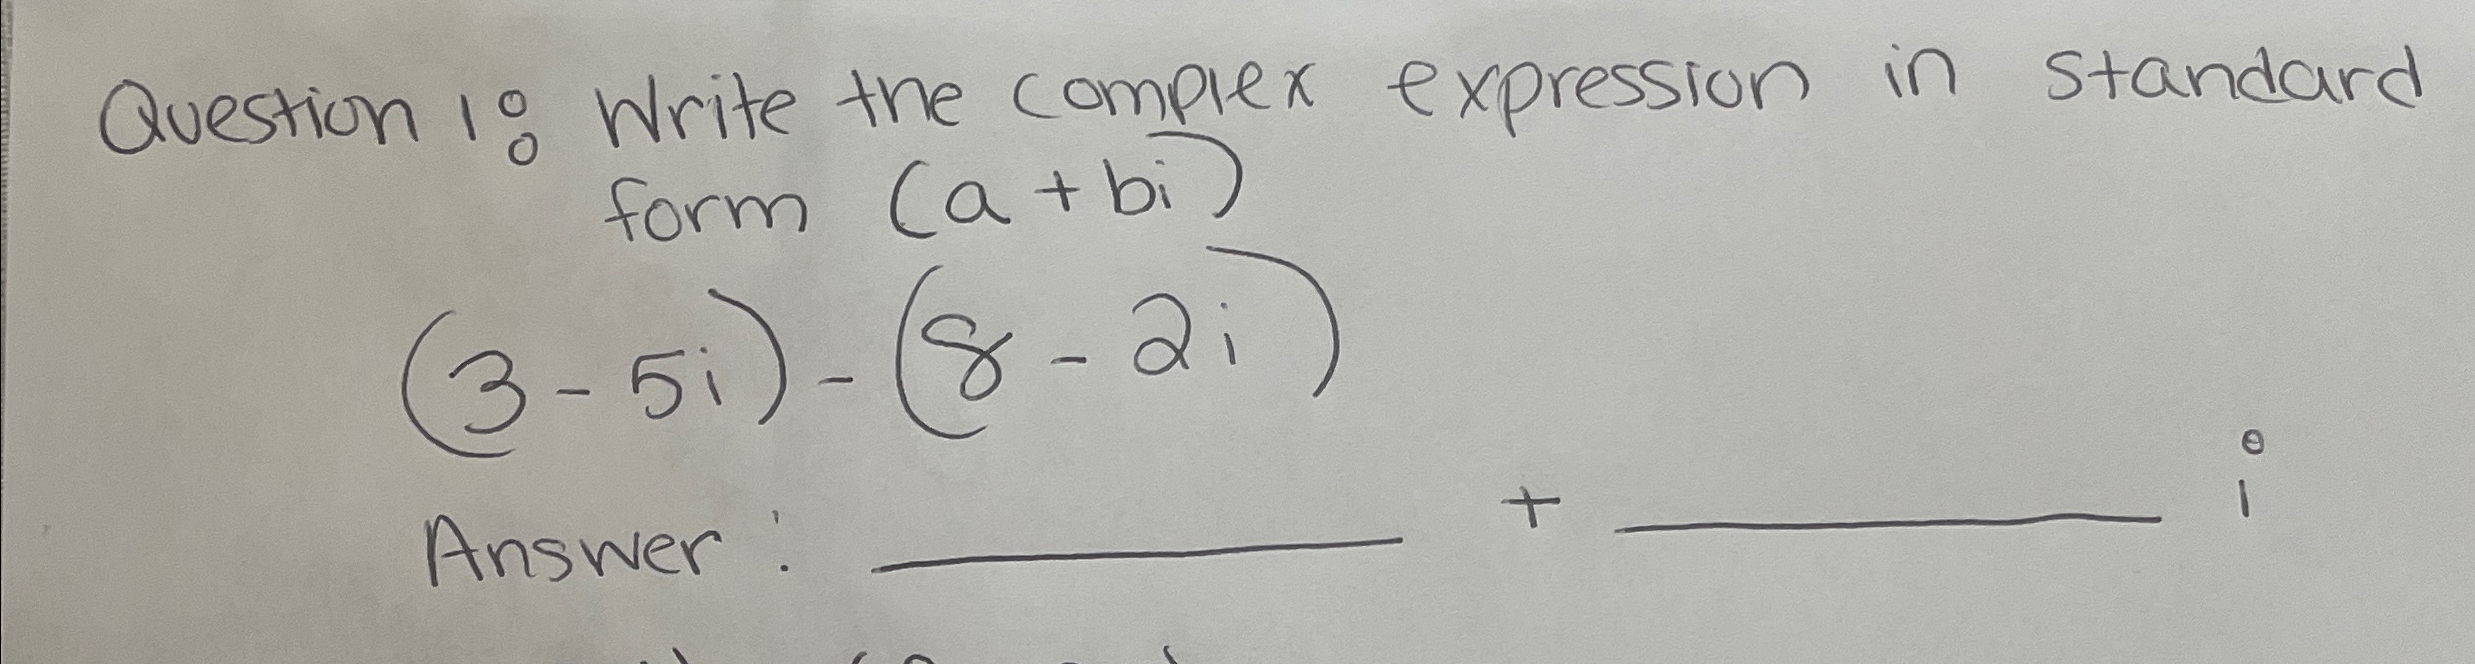 Question 1: Write the complex expression in standard
form (a + bi)
(3 - 5i) - (8 - 2i)
Answer: ________ + ________ i